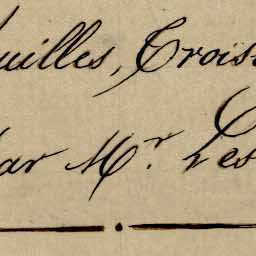 uilles, Crois
ar Mr. Les